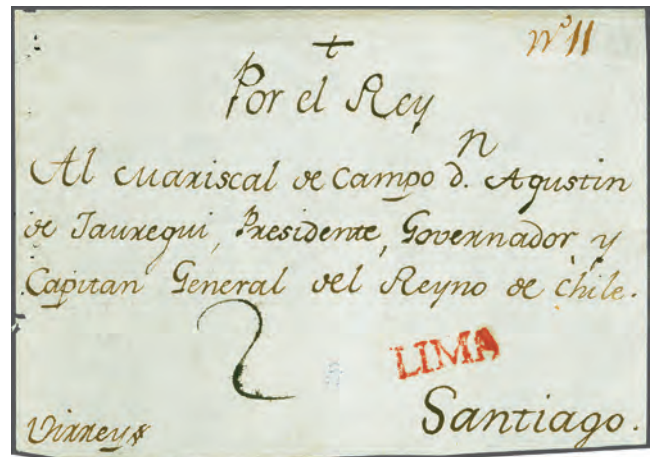 nº 11
+
Por el Rey
Al Mariscal de Campo d.n Agustin
de Jauregui, Presidente, Governador y
Capitan General del Reyno de Chile.
2
LIMA
Santiago.
Virrey